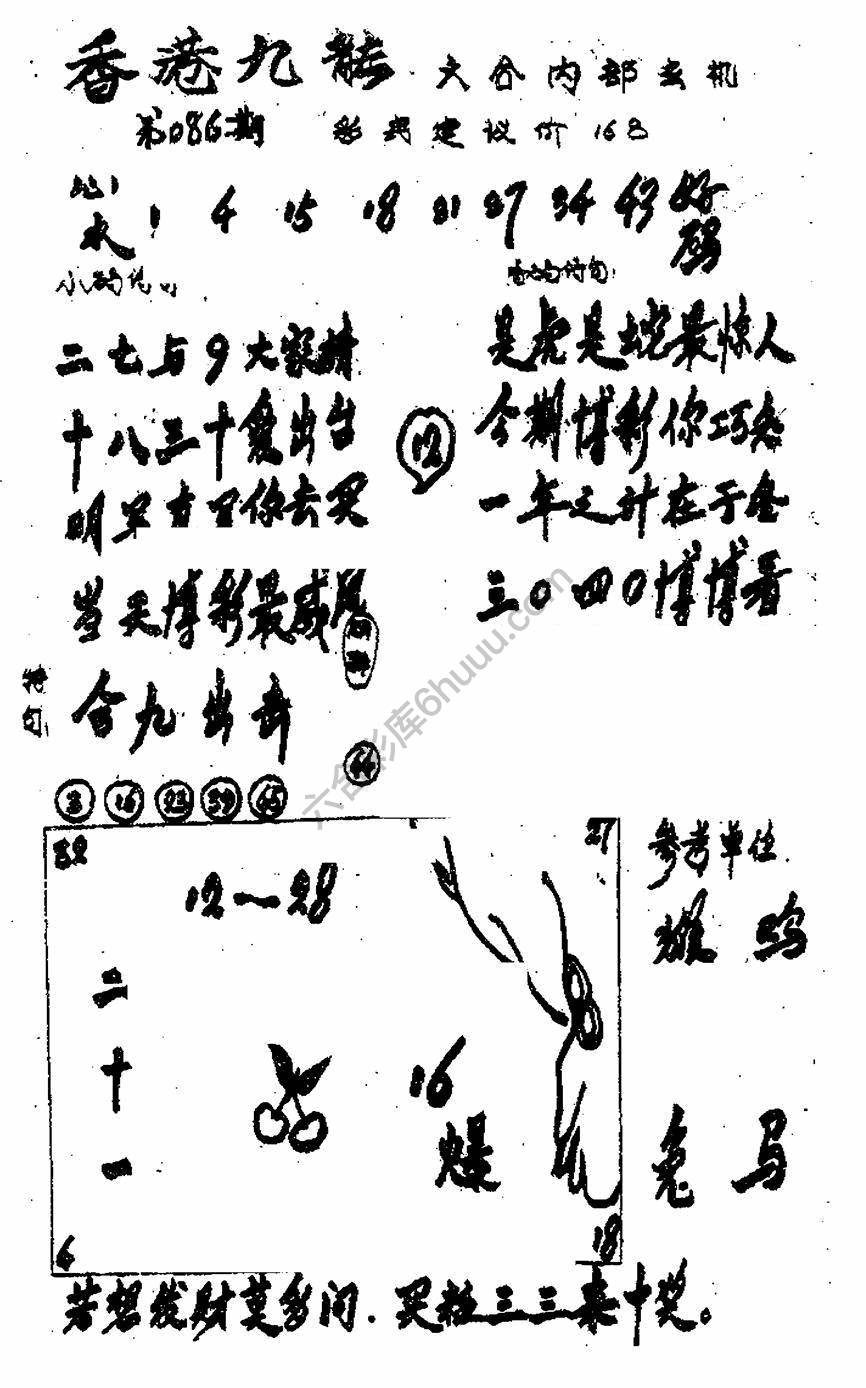 香港九龍 六合内部玄机
第086期 彩民建议价168
心水! 4 15 18 21 27 34 43 好码
二七与9大家猜
十八三十爱出台
明早方写你去买
当天博彩最威风
特句 合九出击
是虎是蛇最惊人
今期博彩你巧忽
一年之计在于全
三0四0博博看
12
44
3 16 23 39 65
32 27
12—28
二十一
16
爆
6 18
参考单位
雄鸡
兔马
若想发财莫多问.买粒三三来中奖。
六合彩库6huuu.com